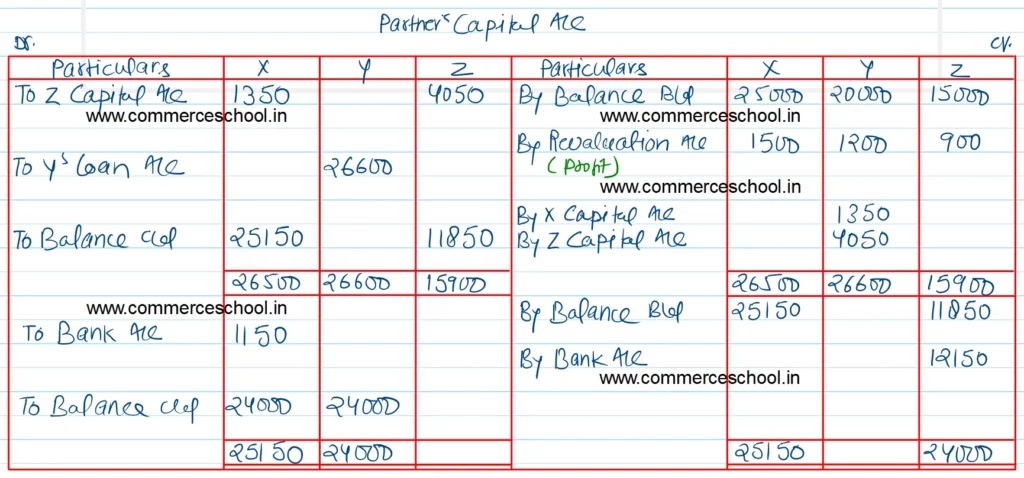 Partner's Capital A/c
Dr. Cr.
Particulars X Y Z Particulars X Y Z
To Z Capital A/c 1350 4050 By Balance B/d 25000 20000 15000
www.commerceschool.in www.commerceschool.in
By Revaluation A/c 1500 1200 900
To Y's Loan A/c 26600 (Profit)
www.commerceschool.in
By X Capital A/c 1350
To Balance c/d 25150 11850 By Z Capital A/c 4050
26500 26600 15900 26500 26600 15900
www.commerceschool.in By Balance B/d 25150 11850
To Bank A/c 1150
By Bank A/c 12150
www.commerceschool.in
To Balance c/d 24000 24000
25150 24000 25150 24000